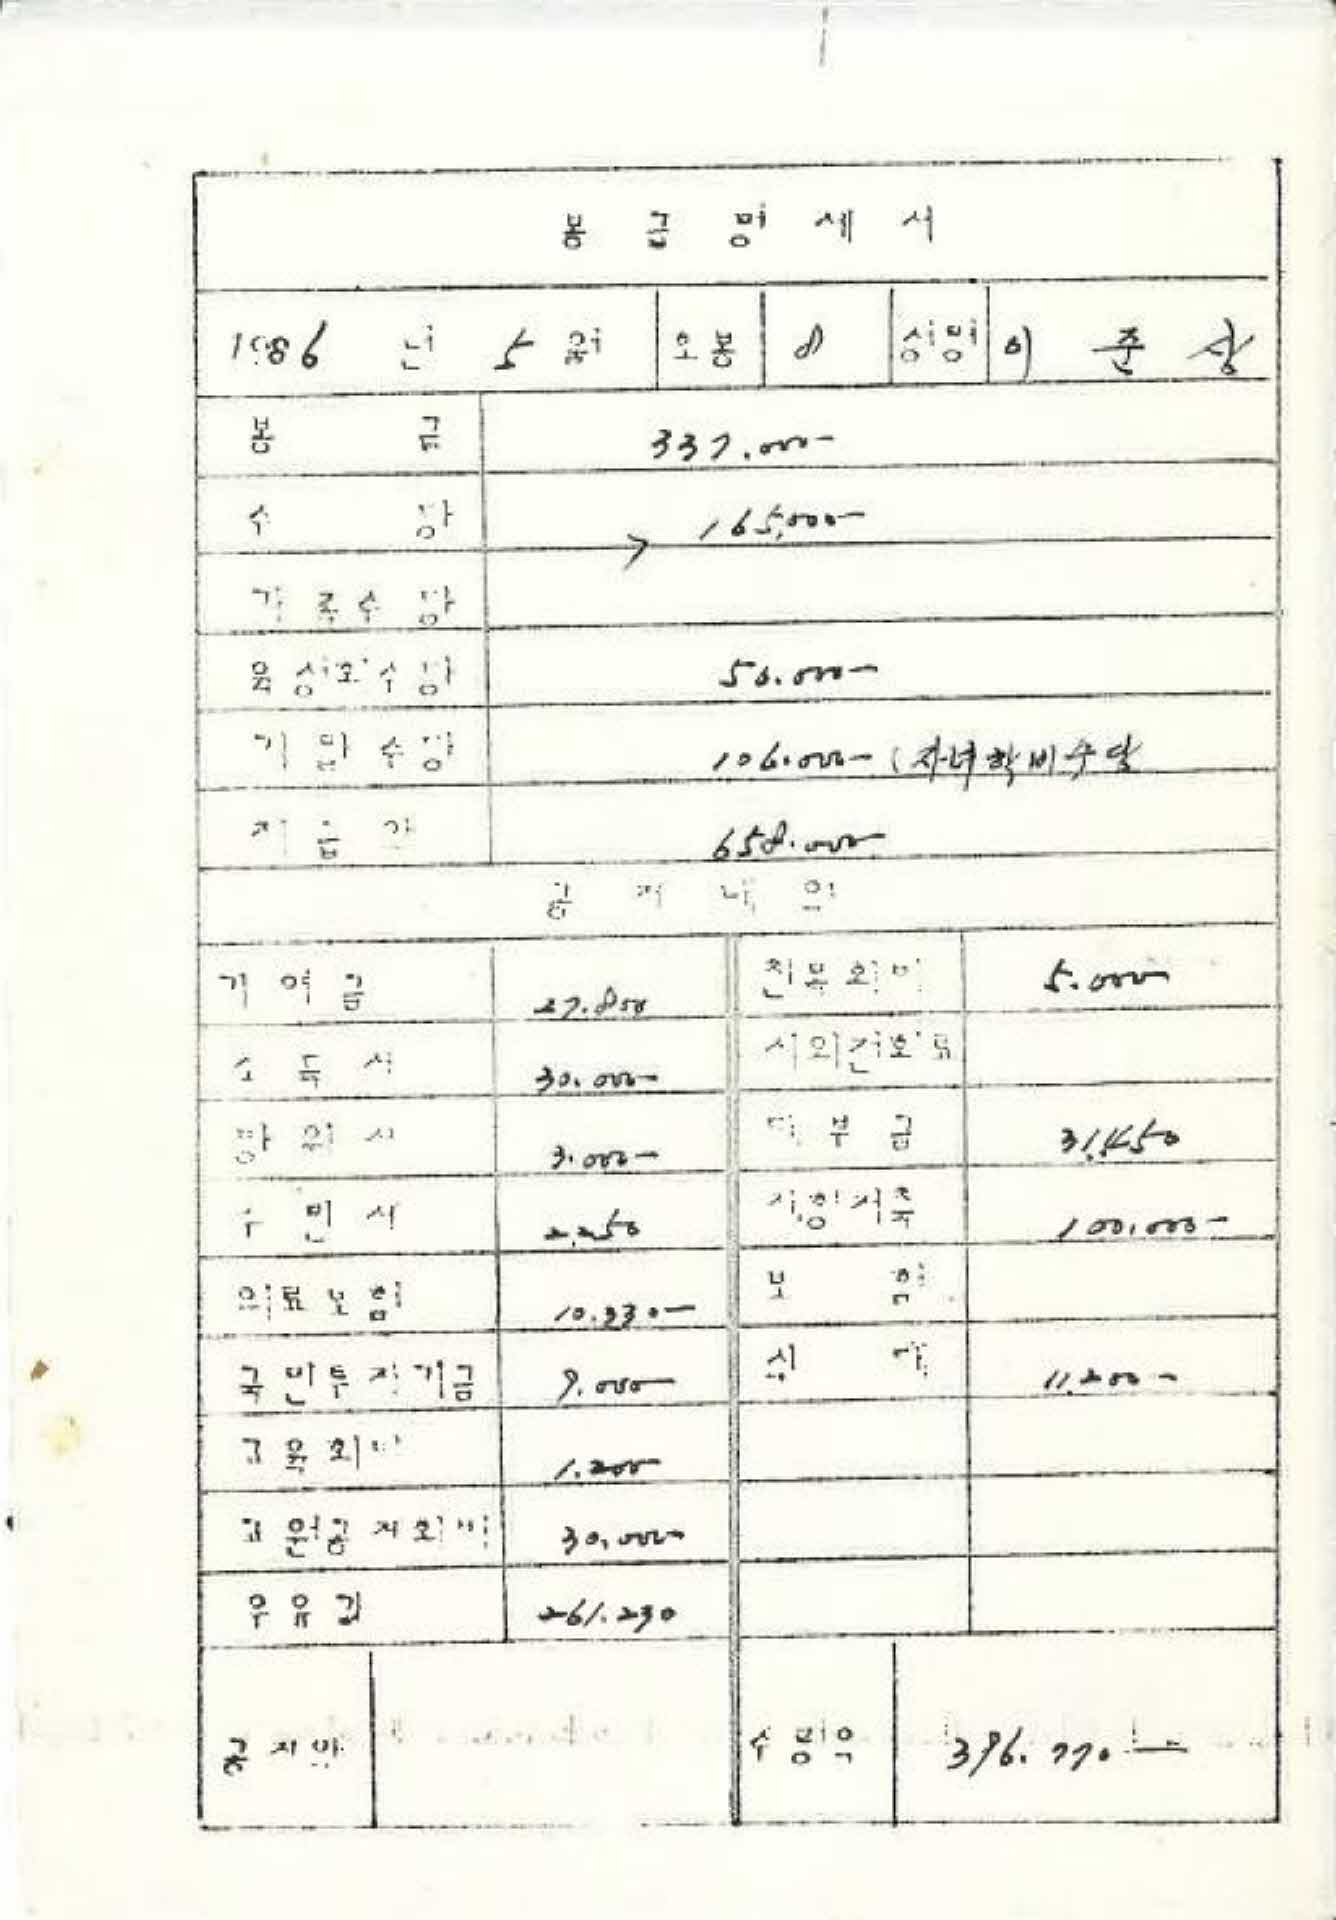 봉 급 명 세 서
1986 년 5 월 호봉 8 성명 이 준 상
봉 급 337.000-
수 당 165,000-
가 족 수 당
육성회수당 50.000-
기 말 수 당 106.000- (자녀학비수당
지 급 액 658.000
공 제 내 역
기 여 금 27.800 친목회비 5.000
소 득 세 30.000- 시외전화료
방 위 세 3.000- 대 부 금 31,450
주 민 세 2.250 재형저축 100.000-
의료보험 10.330- 보 험
국민투자기금 9.000 식 대 11.200-
교 육 회 비 1.200
교원공제회비 30,000
우 유 값 261.230
공 제 액 수령액 396.770.—